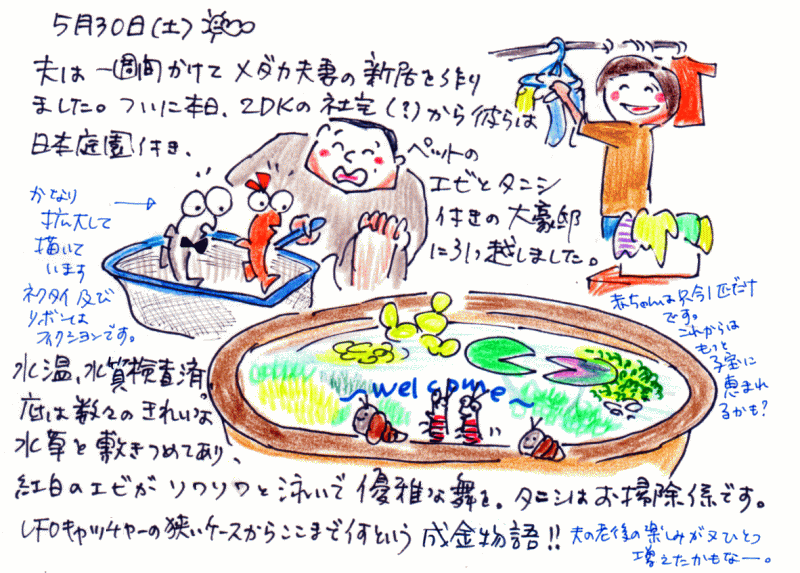 5月30日(土)
夫は一週間かけてメダカ夫妻の新居を作り
ました。ついに本日、2DKの社宅(?)から彼らは
日本庭園付き、
ペットの
エビとタニシ
付きの大豪邸
に引っ越しました。
かなり
拡大して
描いて
います
ネクタイ及び
リボンは
フィクションです。
赤ちゃんは只今1匹だけ
です。
これからは
もっと
子宝に
恵まれ
るかも?
~welcome~
水温、水質検査済。
底は数々のきれいな
水草を敷きつめてあり、
紅白のエビがソワソワと泳いで優雅な舞を。タニシはお掃除係です。
UFOキャッチャーの狭いケースからここまで何すという成金物語!!
夫の老後の楽しみが又ひとつ
増えたかもなー。